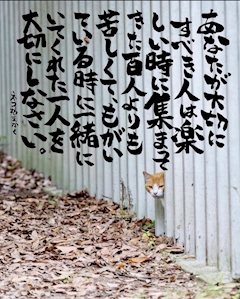 あなたが大切に
すべき人は楽
しい時に集まって
きた百人よりも
苦しくて、もがい
ている時に一緒に
いてくれた一人を
大切にしなさい。